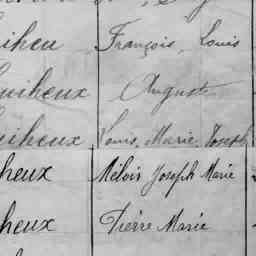 uiheu François, Louis
uiheux August
uiheux Louis, Marie, Joseph
heux Mélois Joseph Marie
heux Pierre Marie